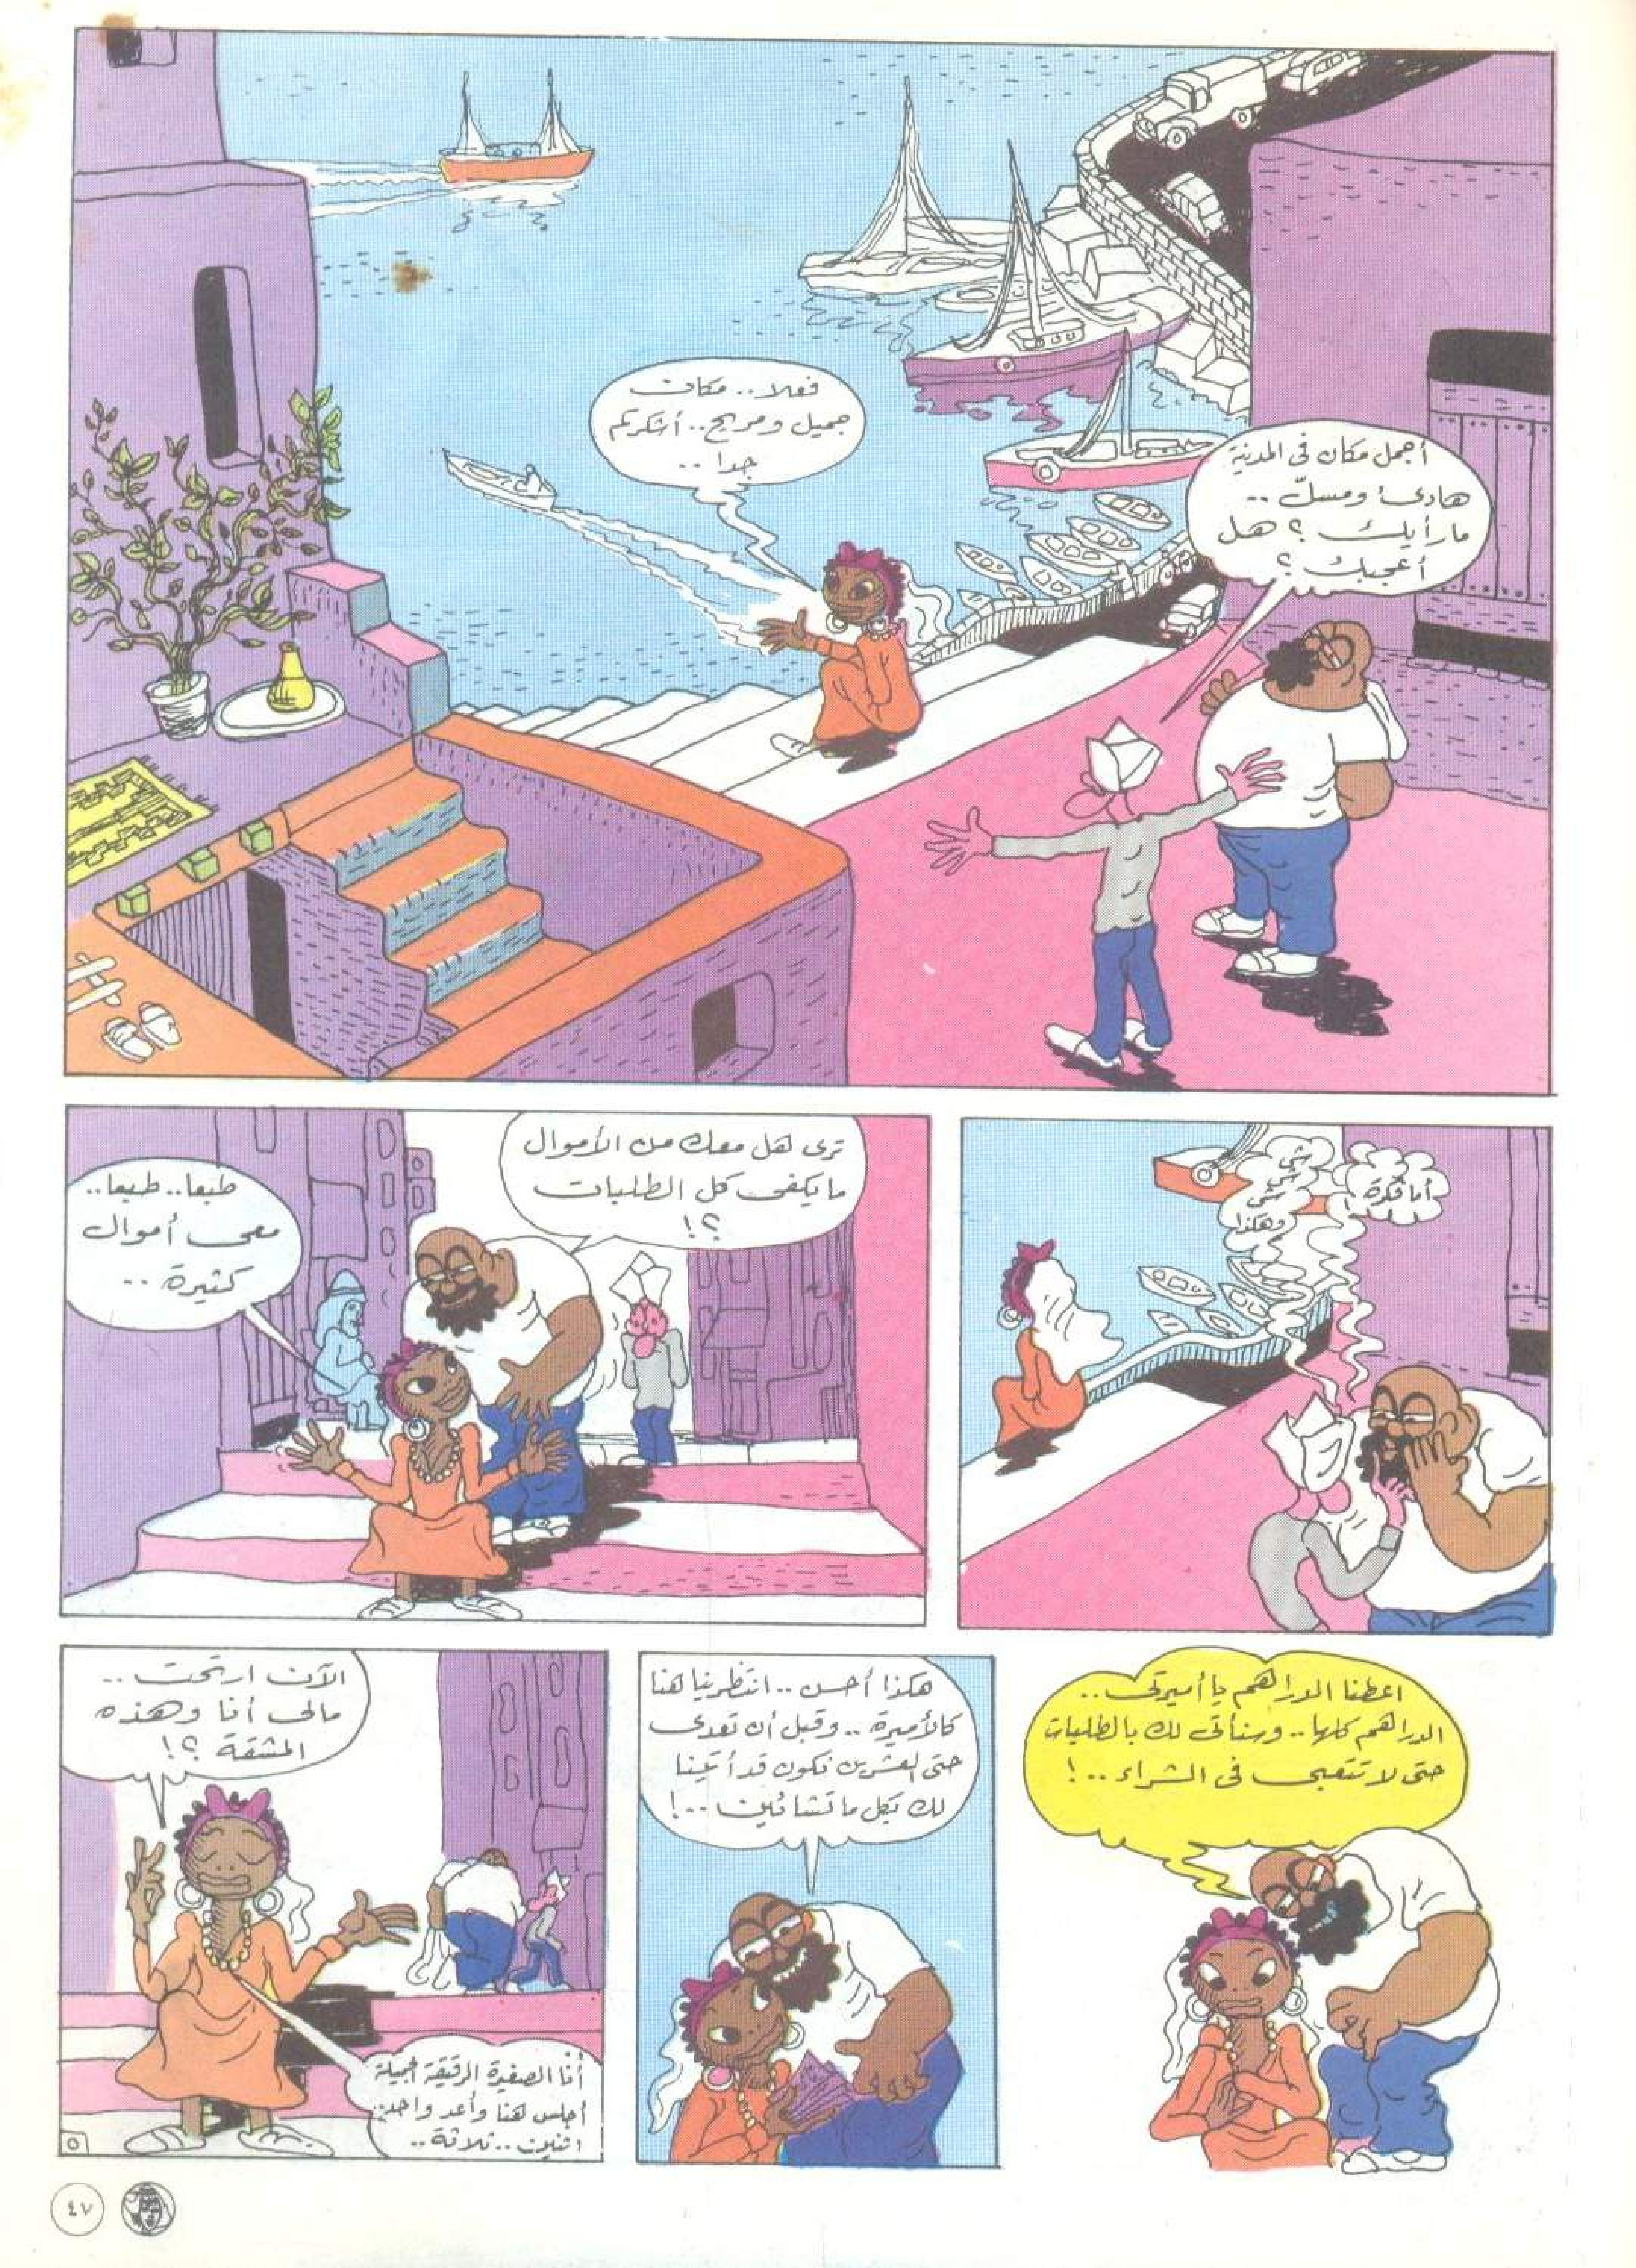 أجمل مكان فى المدينة
هادئ ومسلّ ..
ما رأيك ؟ هل
أعجبك ؟
فعلا .. مكان
جميل ومريح .. أشكركم
جدا ..
أما فكرة !
شى
شى
شى
وهكذا
ترى هل معك من الأموال
ما يكفى كل الطلبات
؟!
طبعا .. طبعا ..
معى أموال
كثيرة ..
اعطنا الدراهم يا أميرتى ..
الدراهم كلها .. وسنأتى لك بالطلبات
حتى لا تتعبى فى الشراء .. !
هكذا أحسن .. انتظرينا هنا
كالأميرة .. وقبل أن تعدى
حتى العشرين نكون قد أتينا
لك بكل ما تشائين .. !
الآن ارتحت ..
مالى أنا وهذه
المشقة ؟!
أنا الصغيرة الرقيقة الجميلة
أجلس هنا وأعد واحد ..
اثنين .. ثلاثة ..
٥
٤٧